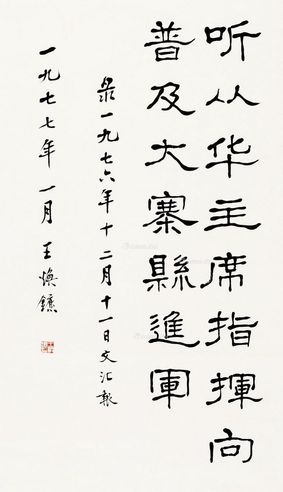 听从华主席指揮向
普及大寨縣進軍
录一九七六年十二月十一日文汇報
一九七七年一月 王焕鑣